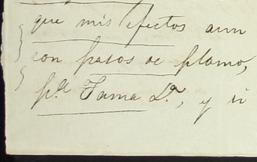 que mis efectos aun
con pasos de plomo,
pª Fama Dª, y si